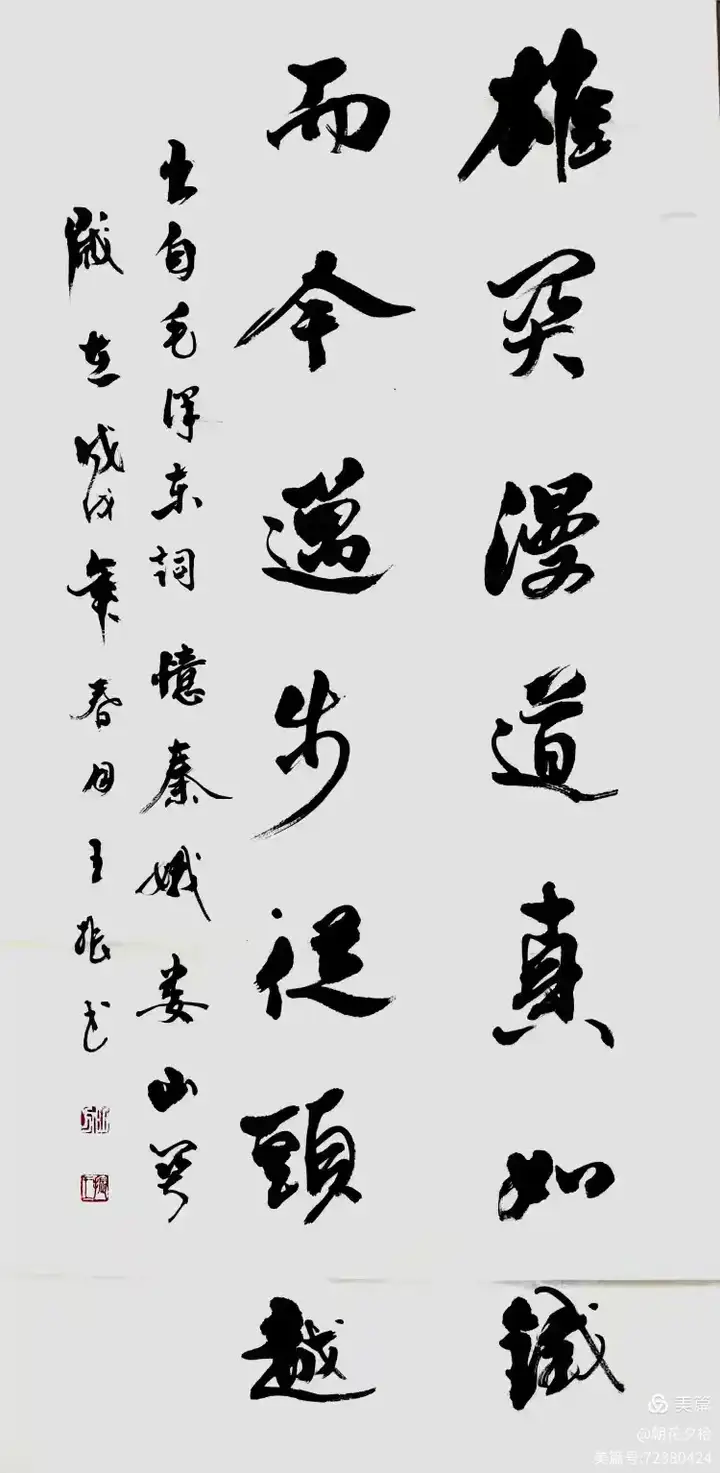 雄关漫道真如鐵
而今邁步從頭越
出自毛泽东詞憶秦娥娄山关
歲在戊戌年春月王振书
美篇
@朝花夕拾
美篇号:72380424